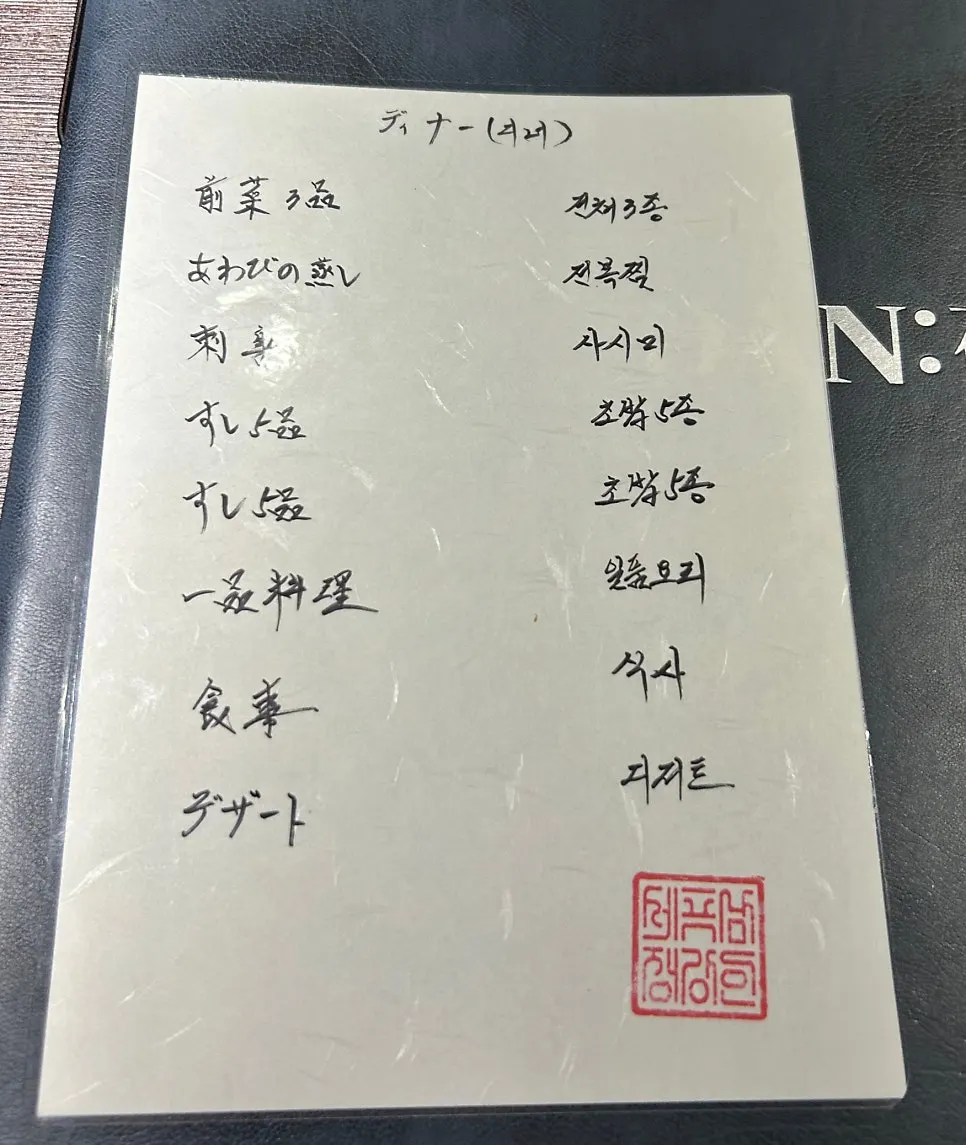 ディナー(디너)
前菜3品 전채3종
あわびの蒸し 전복찜
刺身 사시미
すし5品 초밥5종
すし5品 초밥5종
一品料理 일품요리
食事 식사
デザート 디저트
N: